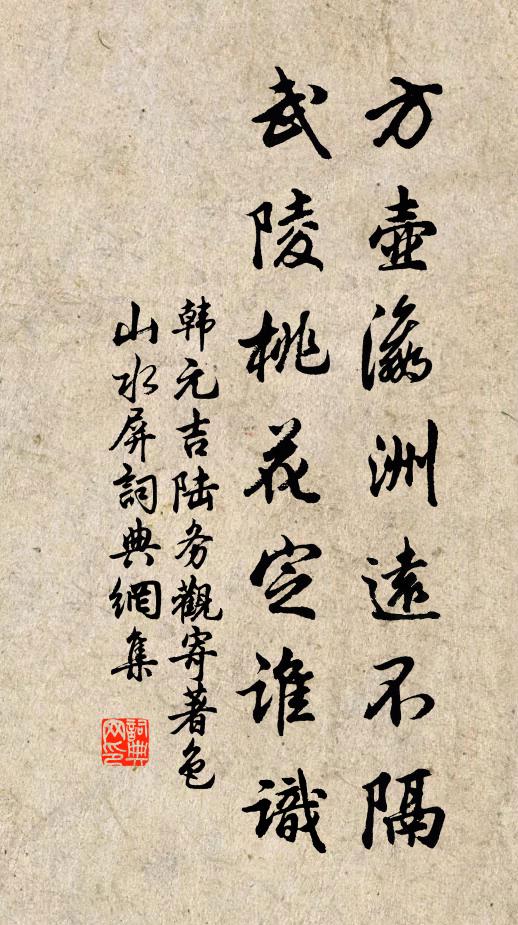 方壺瀛洲遠不隔
武陵桃花定誰識
韩元吉陆务觀寄著色
山水屏詞典網集
詞典
网印